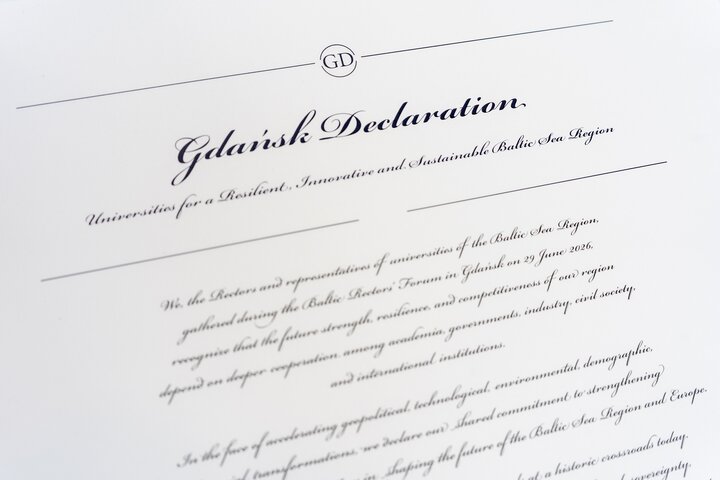 GD
Gdańsk Declaration
Universities for a Resilient, Innovative and Sustainable Baltic Sea Region
We, the Rectors and representatives of universities of the Baltic Sea Region,
gathered during the Baltic Rectors' Forum in Gdańsk on 29 June 2026,
recognize that the future strength, resilience, and competitiveness of our region
depend on deeper cooperation among academia, governments, industry, civil society,
and international institutions.
In the face of accelerating geopolitical, technological, environmental, demographic,
transformations, we declare our shared commitment to strengthening
in shaping the future of the Baltic Sea Region and Europe.
at a historic crossroads today.
sovereignty,